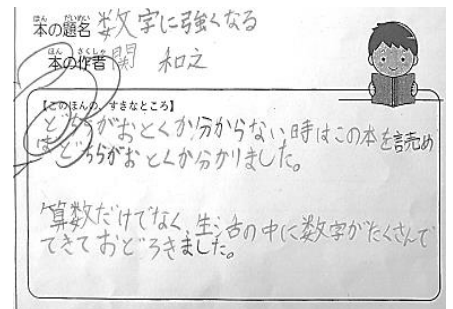 本の題名 数字に強くなる
本の作者 関 和之
【このほんの、すきなところ】
どちらがおとくか分からない時はこの本を読め
ばどちらがおとくか分かりました。
算数だけでなく、生活の中に数字がたくさんで
てきておどろきました。